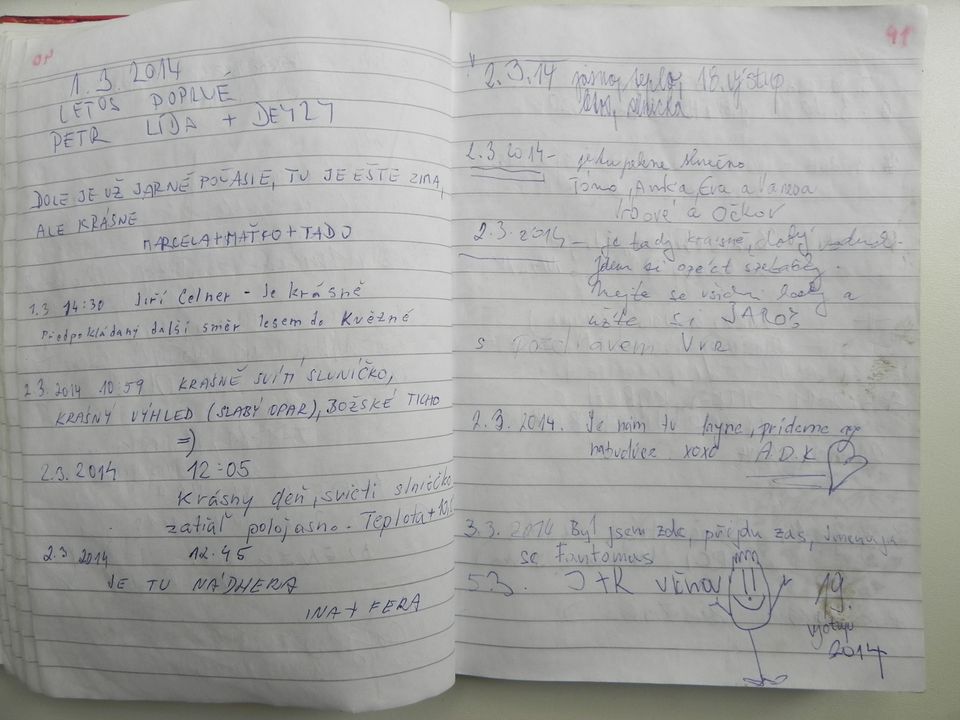 1.3. 2014
LETOS POPRVÉ
PETR LÍDA + DEYZY
DOLE JE UŽ JARNÉ POČASIE, TU JE EŠTE ZIMA,
ALE KRÁSNE
MARCELA+MAŤKO+TADJ
1.3 14:30 Jiří Celner - Je krásně
Předpokládaný další směr lesem do Květné
2.3. 2014 10:59 KRASNĚ SVÍTÍ SLUNÍČKO,
KRASNÝ VÝHLED (SLABÝ OPAR), BOŽSKÉ TICHO
=)
2.3. 2014 12:05
Krásny deň, svieti slniečko
zatiaľ polojasno. Teplota +10
2.3 2014 12.45
JE TU NÁDHERA
INA + FERA
41
2.3.14 teplo, 18. výstup
2.3.2014 - je tu pekne slnečno
Tomo, Anka, Eva a
a Očkov
2.3.2014 - je tady krásně, dobý
Jdem si opéct špekáčky.
Mějte se všichni hezky a
užite si JAROŠ
s pozdravem VVR
2.3.2014. Je nám tu fajne, prídeme aj
nabudúce xoxo A.D.K
3.3. 2014 Byl jsem zde, přijdu zas, jmenuja
se Fantomas
5.3. J+K věčnaj
19.
výstup
2014